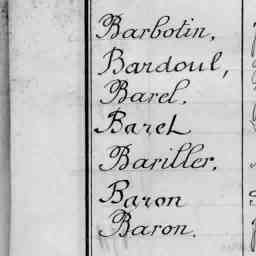 Barbotin,
Bardoul,
Barel.
Baret
Bariller.
Baron
Baron.